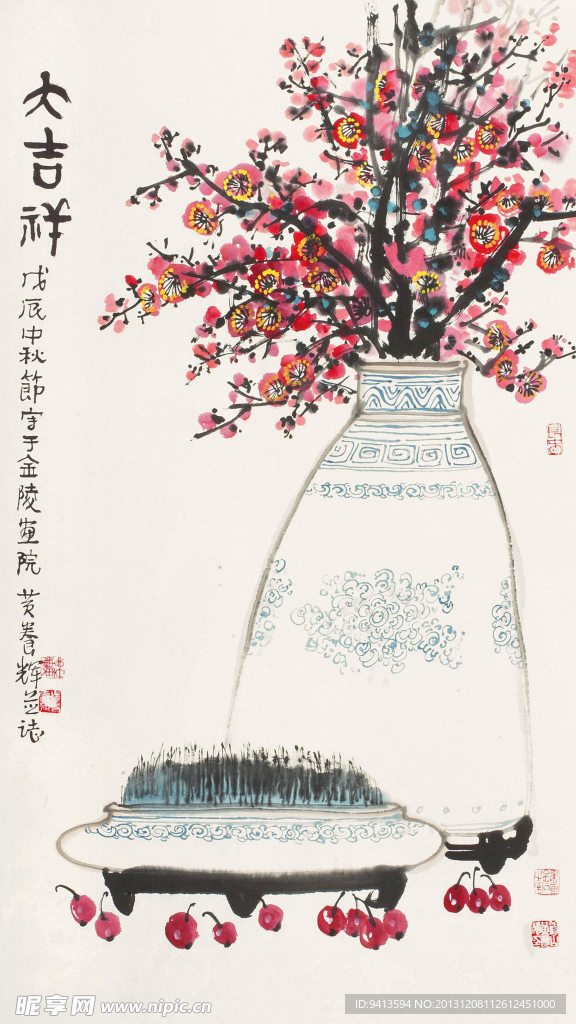 大吉祥
戊辰中秋節写于金陵画院 黄養辉并誌
昵享网 www.nipic.cn
ID:9413594 NO:20131208112612451000